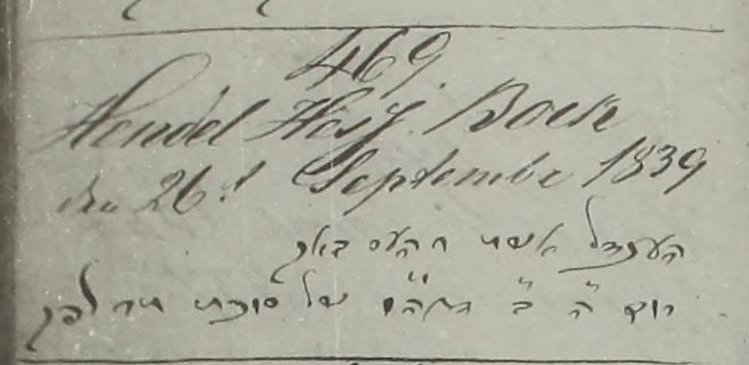 469.
Hendel Hess. Bock
den 26t September 1839
הענדל אשת ר העס באק
יום ה" ב" דחה"מ של סוכות תר לפק